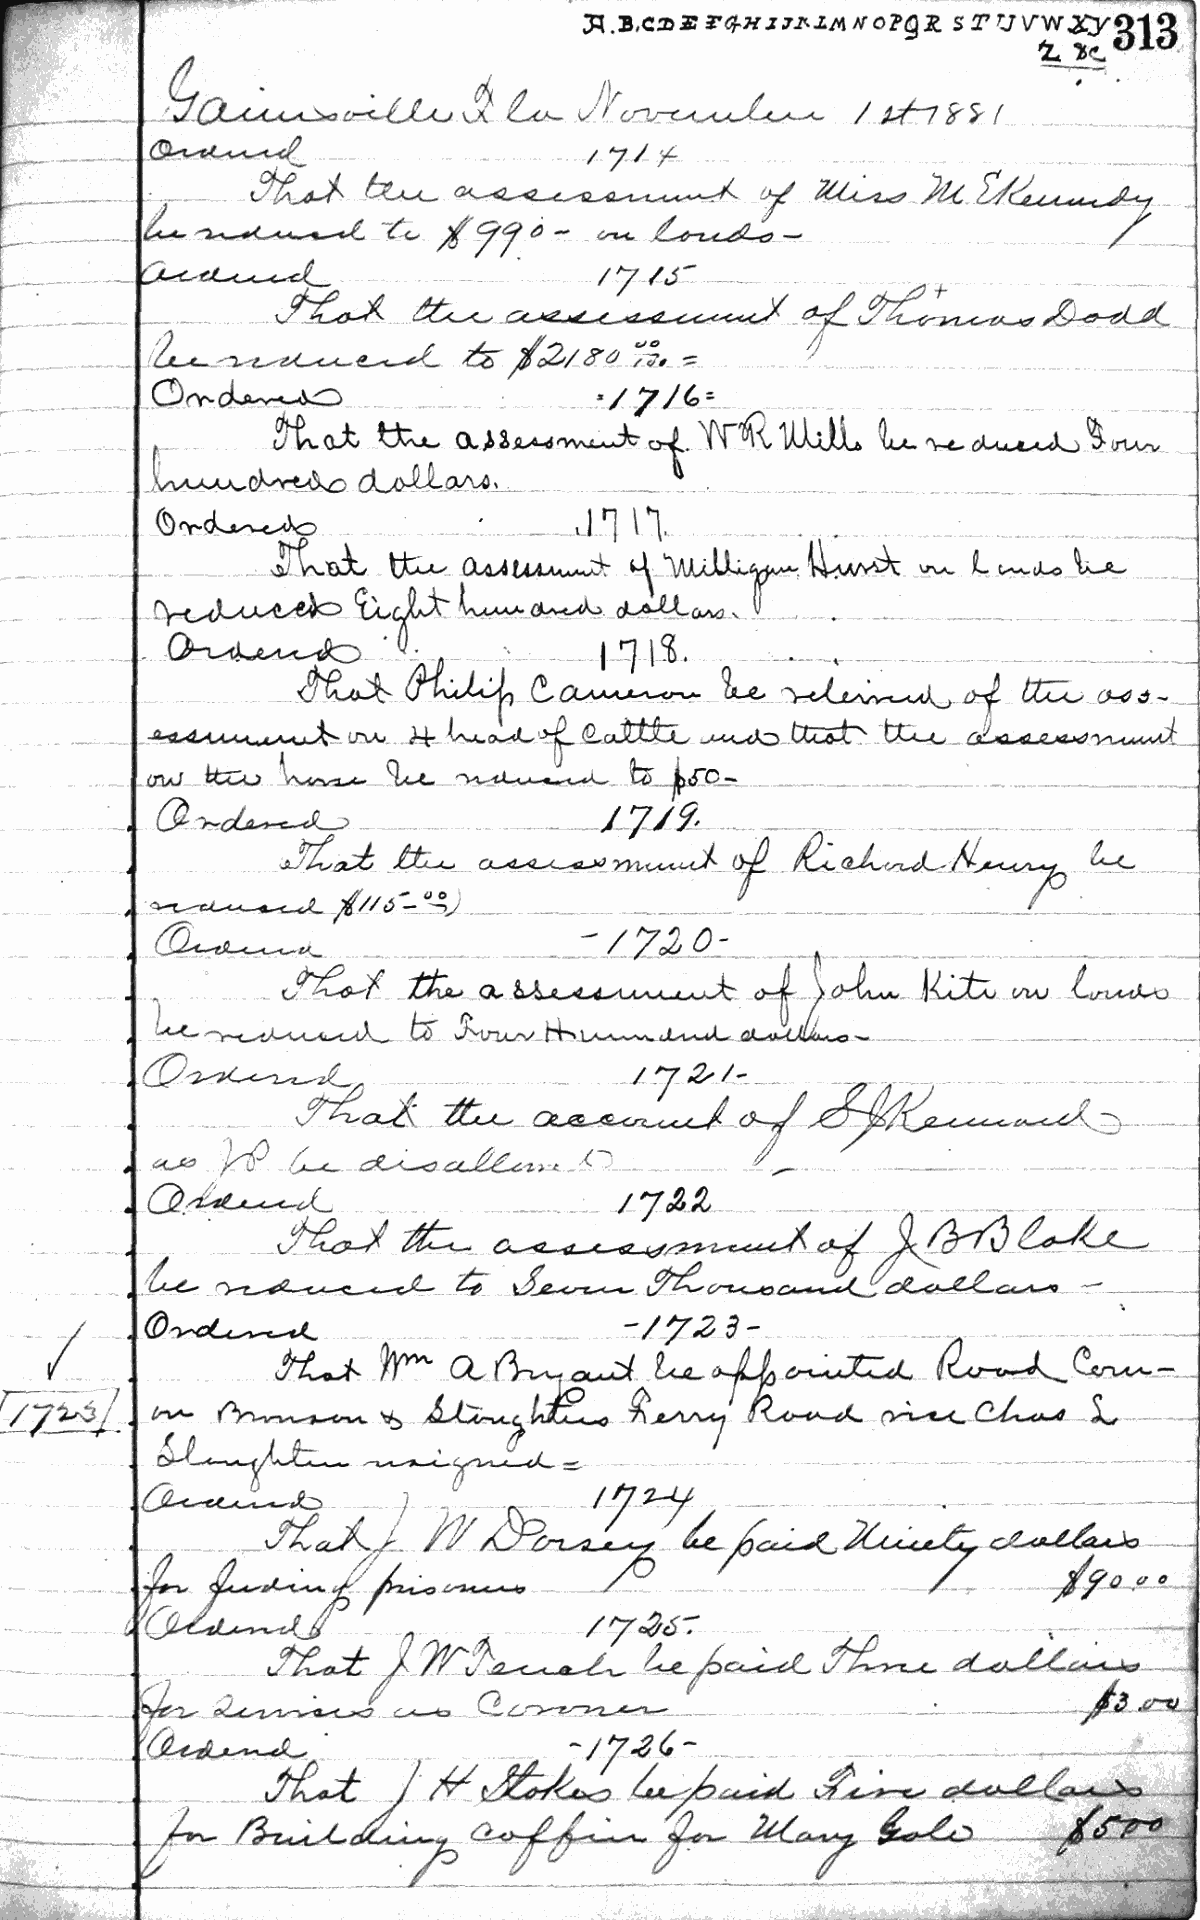 A.B.C D E F G H I J K L M N O P Q R S T U V W X Y 313
Z &c
Gainesville Fla November 1st 1881
Ordered 1714
That the assessment of Miss M E Kennedy
be reduced to $990- on lands-
Ordered 1715
That the assessment of Thomas Dodd
be reduced to $2180 00/100 =
Ordered =1716=
That the assessment of W R Mills be reduced Four
hundred dollars.
Ordered 1717.
That the assessment of Milligan Hurst on lands be
reduced Eight hundred dollars.
Ordered 1718.
That Philip Cameron be relieved of the ass-
essment on 4 head of Cattle and that the assessment
on the horse be reduced to $50-
Ordered 1719.
That the assessment of Richard Henry be
reduced $115-00
Ordered -1720-
That the assessment of John Kite on lands
be reduced to Four Hundred dollars-
Ordered 1721-
That the account of S J Kennard
as J P be disallowed
Ordered 1722
That the assessment of J B Blake
be reduced to Seven Thousand dollars-
Ordered -1723-
That Wm A Bryant be appointed Road Com-
1723 on Bronson & Sloughters Ferry Road vice Chas L
Sloughter resigned=
Ordered 1724
That J W Dorsey be paid Ninety dollars
for feeding prisoners $90.00
Ordered 1725.
That J W Tench be paid Three dollars
for services as Coroner $3.00
Ordered -1726-
That J H Stokes be paid Five dollars
for Building coffin for Mary Gold $5.00